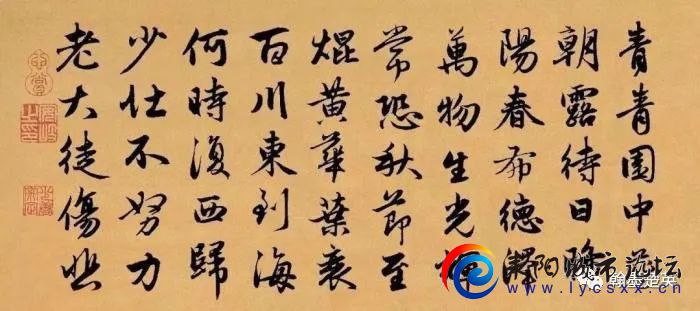 青青園中葵
朝露待日晞
陽春布德澤
萬物生光輝
常恐秋節至
焜黃華葉衰
百川東到海
何時復西歸
少壯不努力
老大徒傷悲
阳 市论坛
www.lycsxx.cn
翰墨楚英